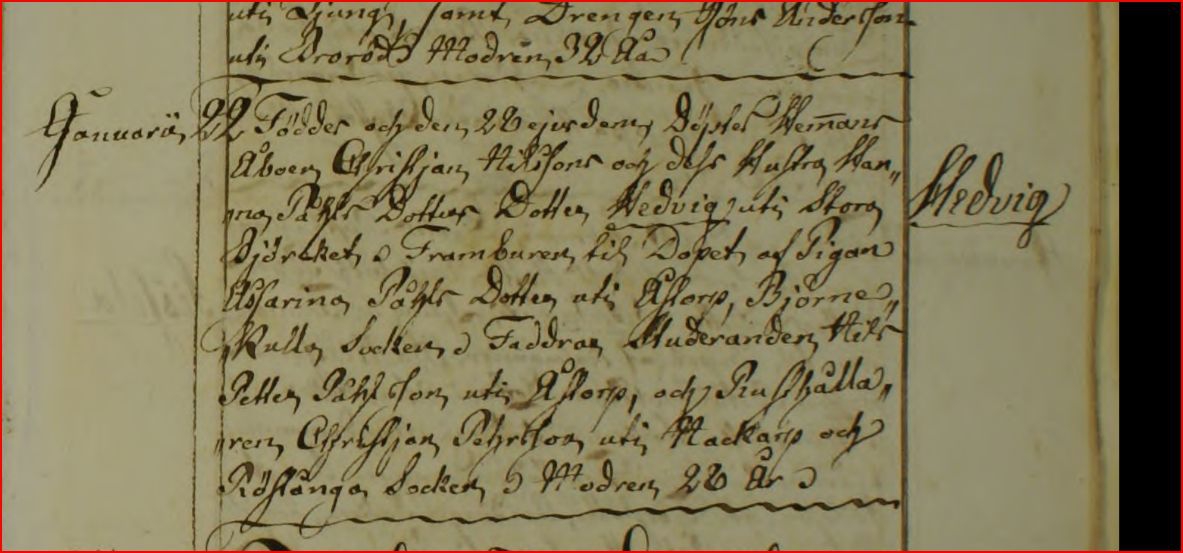 uti Ljung, samt Drengen Jöns Andersson
uti Broröd. Modren 32 Åa
Januarii 22 Föddes och den 28 ejusdem, Döptes Hemans
Åboen Christjan Nilssons och dess Hustru Han„
„na Påhls Dotters Dotter Hedvig uti Stora Hedvig
Björket. Framburen till Dopet af Pigan
Assarina Påhls Dotter uti Åstorp, Björne„
Kulla Socken. Faddrar Studeranden Nils
Petter Påhlsson uti Åstorp, och Rusthålla„
„ren Christjan Pehrsson uti Hackarp och
Röstånga Socken. Modren 28 År.